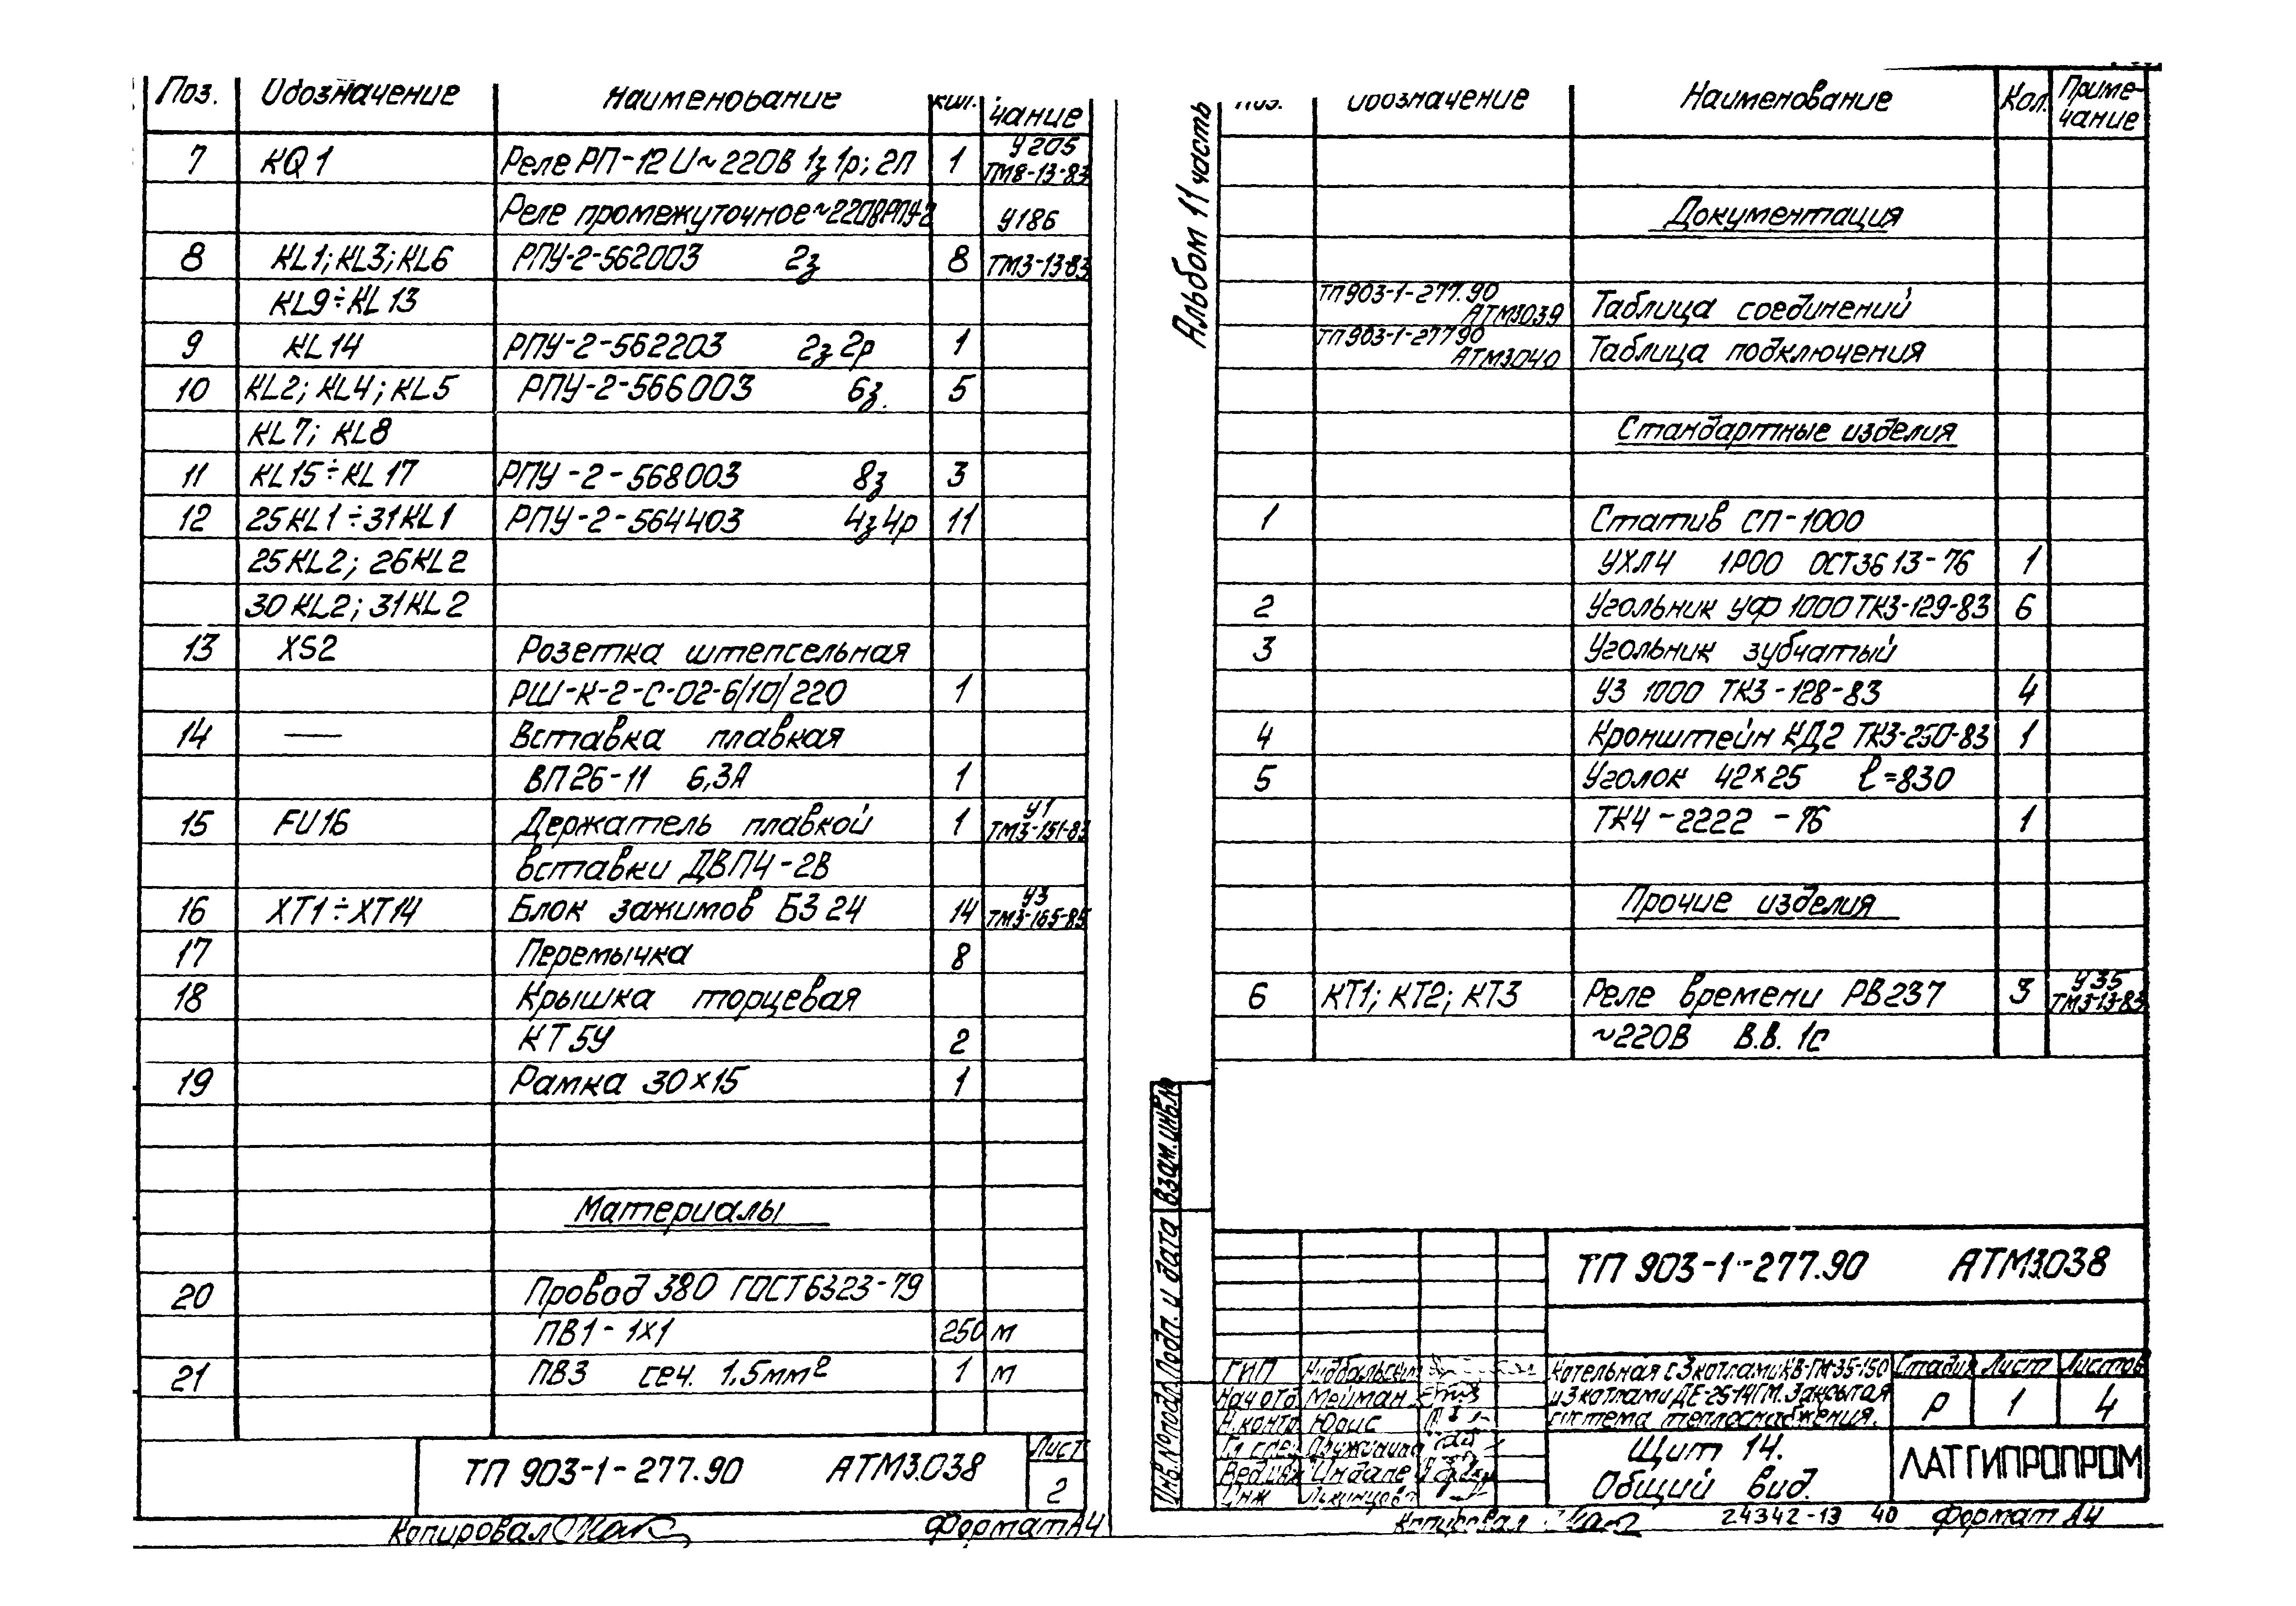 Поз. Обозначение Наименование Кол. чание
7 KQ1 Реле РП-12 U~220В 1з 1р; 2П 1 У205 ТМ8-13-83
Реле промежуточное~220В РПУ-2 У186
8 KL1; KL3; KL6 РПУ-2-562003 2з 8 ТМ3-13-83
KL9÷KL13
9 KL14 РПУ-2-562203 2з 2р 1
10 KL2; KL4; KL5 РПУ-2-566003 6з. 5
KL7; KL8
11 KL15÷KL17 РПУ-2-568003 8з 3
12 25KL1÷31KL1 РПУ-2-564403 4з 4р 11
25KL2; 26KL2
30KL2; 31KL2
13 XS2 Розетка штепсельная
РШ-К-2-С-02-6/10/220 1
14 — Вставка плавкая
ВП26-11 6,3А 1
15 FU16 Держатель плавкой 1 У1 ТМ3-151-83
вставки ДВП4-2В
16 XT1÷XT14 Блок зажимов БЗ 24 14 У3 ТМ3-165-85
17 Перемычка 8
18 Крышка торцевая
КТ5У 2
19 Рамка 30×15 1
Материалы
20 Провод 380 ГОСТ 6323-79
ПВ1-1×1 250 м
21 ПВ3 сеч. 1,5мм² 1 м
ТП 903-1-277.90 АТМ3.038 Лист
2
Копировал Формат А4
Альбом 11 часть
Поз. Обозначение Наименование Кол. Приме-
чание
Документация
ТП 903-1-277.90
АТМ3.039 Таблица соединений
ТП 903-1-277.90
АТМ3.040 Таблица подключения
Стандартные изделия
1 Статив СП-1000
УХЛ4 IP00 ОСТ36 13-76 1
2 Угольник УФ 1000 ТК3-129-83 6
3 Угольник зубчатый
УЗ 1000 ТК3-128-83 4
4 Кронштейн КД2 ТК3-250-83 1
5 Уголок 42×25 ℓ=830
ТК4-2222-76 1
Прочие изделия
6 КТ1; КТ2; КТ3 Реле времени РВ237 3 У35 ТМ3-13-83
~220В В.В. 1с
Взам.инв.№
Подп. и дата
Инв.№подл.
ТП 903-1-277.90 АТМ3.038
ГИП
Нач отд Мейман
Н.контр Юрис
Гл спец
Вед инж Индане
Инж
Котельная с 3 котлами КВ-ГМ-35-150
и 3 котлами ДЕ-25-14ГМ. Закрытая
система теплоснабжения.
Стадия Лист Листов
Р 1 4
Щит 14.
Общий вид.
ЛАТГИПРОПРОМ
Копировал 24342-13 40 Формат А4